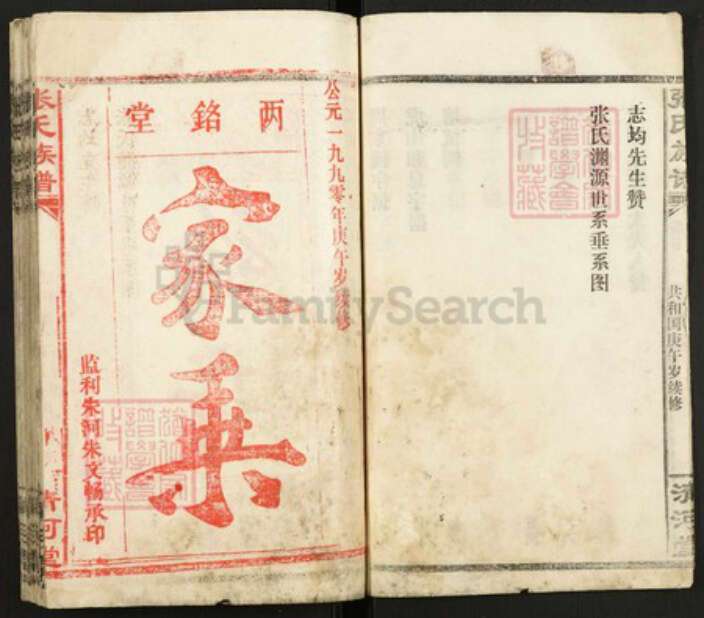 志均先生赞
张氏渊源世系垂系图
共和国庚午岁续修
公元一九九零年庚午岁续修
两铭堂
家乘
监利朱河朱文畅承印
张氏族谱
清河堂
FamilySearch